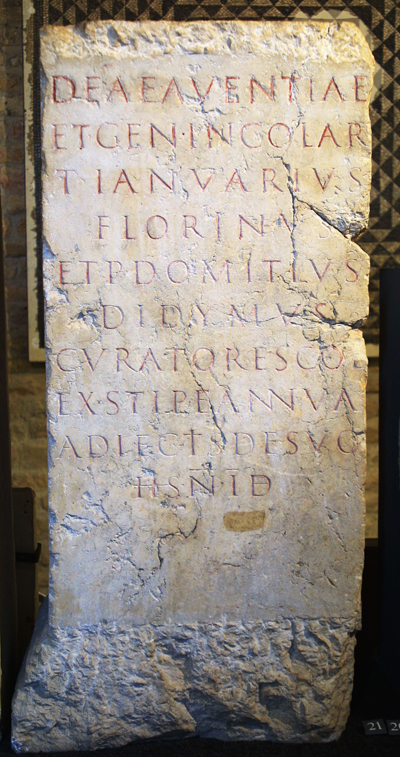 DEAE AVENTIAE
ET GEN·INCOLAR
T·IANVARIVS
FLORINVS
ET P DOMITIVS
DIDYMVS
CVRATORES CO
EX·STIPE ANNVA
ADIECTS DE SVO
HSN I D
21